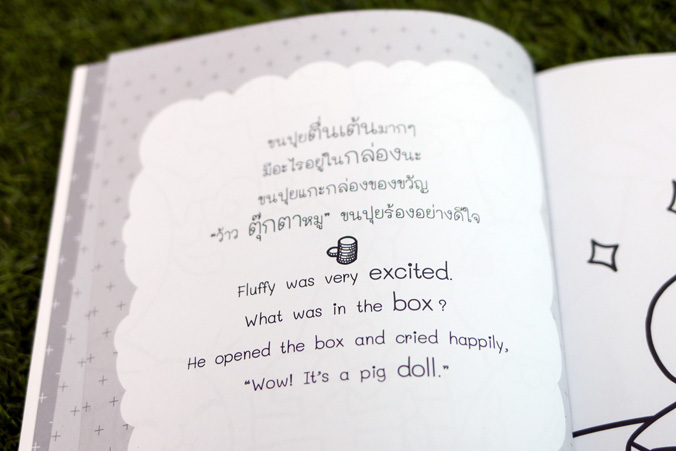 ขนปุยตื่นเต้นมากๆ
มีอะไรอยู่ในกล่องนะ
ขนปุยแกะกล่องของขวัญ
"ว้าว ตุ๊กตาหมู" ขนปุยร้องอย่างดีใจ
Fluffy was very excited.
What was in the box?
He opened the box and cried happily,
"Wow! It's a pig doll."